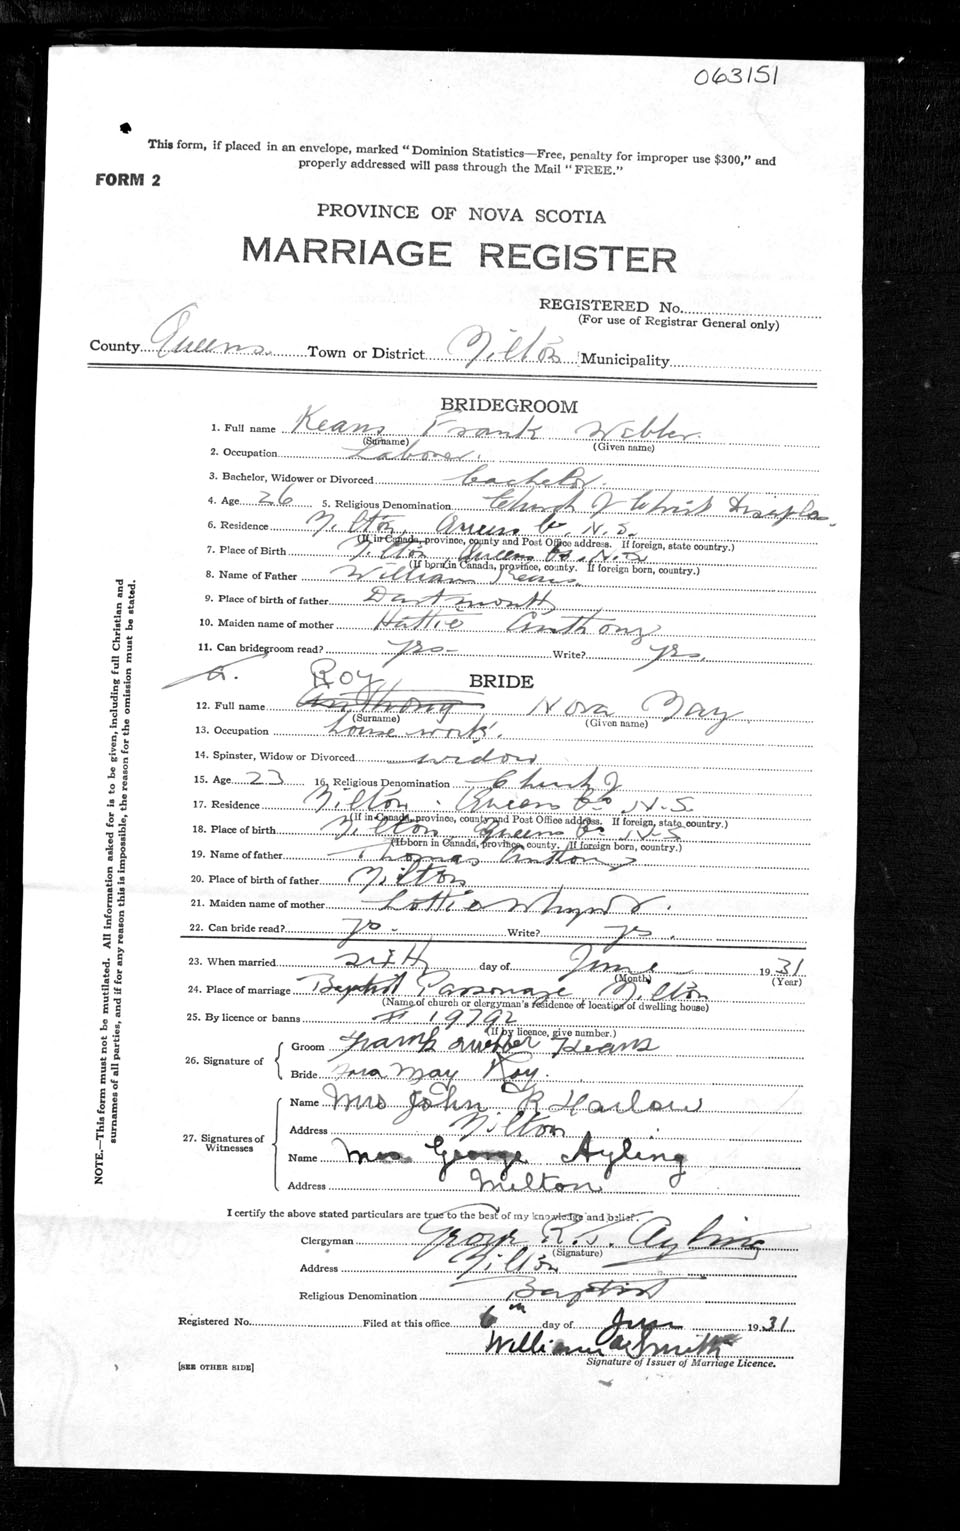 063151
This form, if placed in an envelope, marked "Dominion Statistics—Free, penalty for improper use $300," and
properly addressed will pass through the Mail "FREE."
FORM 2
PROVINCE OF NOVA SCOTIA
MARRIAGE REGISTER
REGISTERED No.
(For use of Registrar General only)
County Queens Town or District Milton Municipality
BRIDEGROOM
1. Full name Keans Frank Webber
(Surname) (Given name)
2. Occupation Laborer.
3. Bachelor, Widower or Divorced bachelor.
4. Age 26 5. Religious Denomination Church of Christ Disciples
6. Residence Milton, Queens Co. N.S.
(If in Canada, province, county and Post Office address. If foreign, state country.)
7. Place of Birth Milton Queens Co. N.S.
(If born in Canada, province, county. If foreign born, country.)
8. Name of Father William Keans.
9. Place of birth of father Dartmouth
10. Maiden name of mother Hattie Anthony
11. Can bridegroom read? yes Write? yes.
BRIDE
Roy
12. Full name Anthony Nora May
(Surname) (Given name)
13. Occupation housework.
14. Spinster, Widow or Divorced widow
15. Age 23 16. Religious Denomination Church of
17. Residence Milton. Queens Co N.S.
(If in Canada, province, county and Post Office address. If foreign, state country.)
18. Place of birth Milton, Queens Co N.S
(If born in Canada, province, county. If foreign born, country.)
19. Name of father Thomas Anthony
20. Place of birth of father Milton
21. Maiden name of mother Lottie Whynot.
22. Can bride read? yes. Write? yes.
23. When married sixth day of June 1931
(Month) (Year)
24. Place of marriage Baptist Parsonage Milton
(Name of church or clergyman's residence or location of dwelling house)
25. By licence or banns # 19792
(If by licence, give number.)
26. Signature of
Groom Frank Webber Keans
Bride Nora May Roy.
27. Signatures of Witnesses
Name Mrs John R Harlow
Address Milton
Name Mrs. George Ayling
Address Milton
I certify the above stated particulars are true to the best of my knowledge and belief.
Clergyman George R. Ayling
(Signature)
Address Milton
Religious Denomination Baptist
Registered No. Filed at this office 6th day of June 1931
William Smith
Signature of Issuer of Marriage Licence.
[SEE OTHER SIDE]
NOTE.—This form must not be mutilated. All information asked for is to be given, including full Christian and
surnames of all parties, and if for any reason this is impossible, the reason for the omission must be stated.